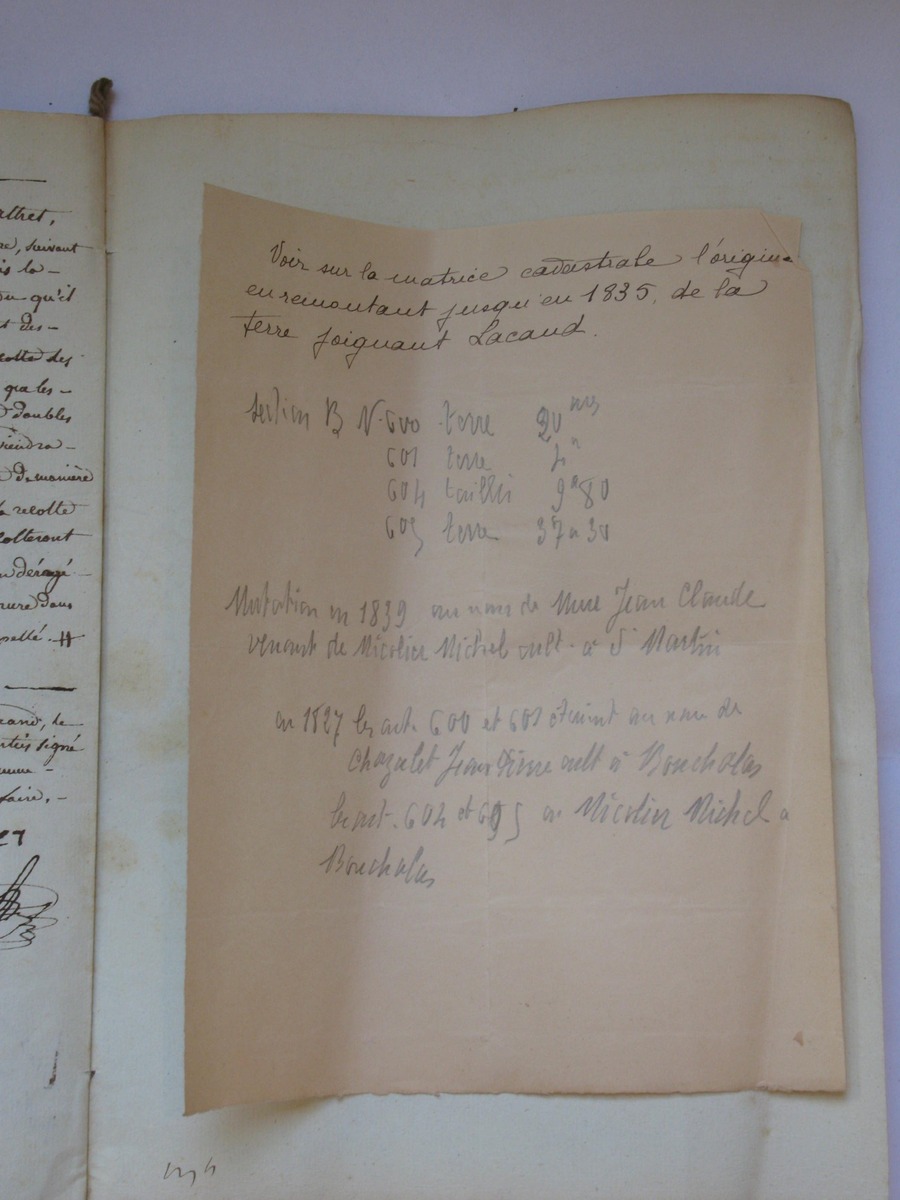 athet,
re, suivant
is la-
du qu'il
t des-
colte des
que les-
doubles
viendra-
de manière
la recolte
olteront
dérogé-
rure dans
ette. #
eand, le
signé
taire,-
27
Voir sur la matrice cadastrale l'origine
en remontant jusqu'en 1835, de la
terre joignant Lacaud.
Section B N° 600 terre 20 ares
601 terre
604 taillis 9a80
605 terre 37a30
Mutation en 1839 au nom de Mme Jean Claude
venant de Nicolier Michel cult. à St Martin
en 1827 les art. 600 et 601 étaient au nom de
Chazalet Jean Pierre cult à Boucholas
les art. 604 et 605 au Nicolier Michel a
Boucholas